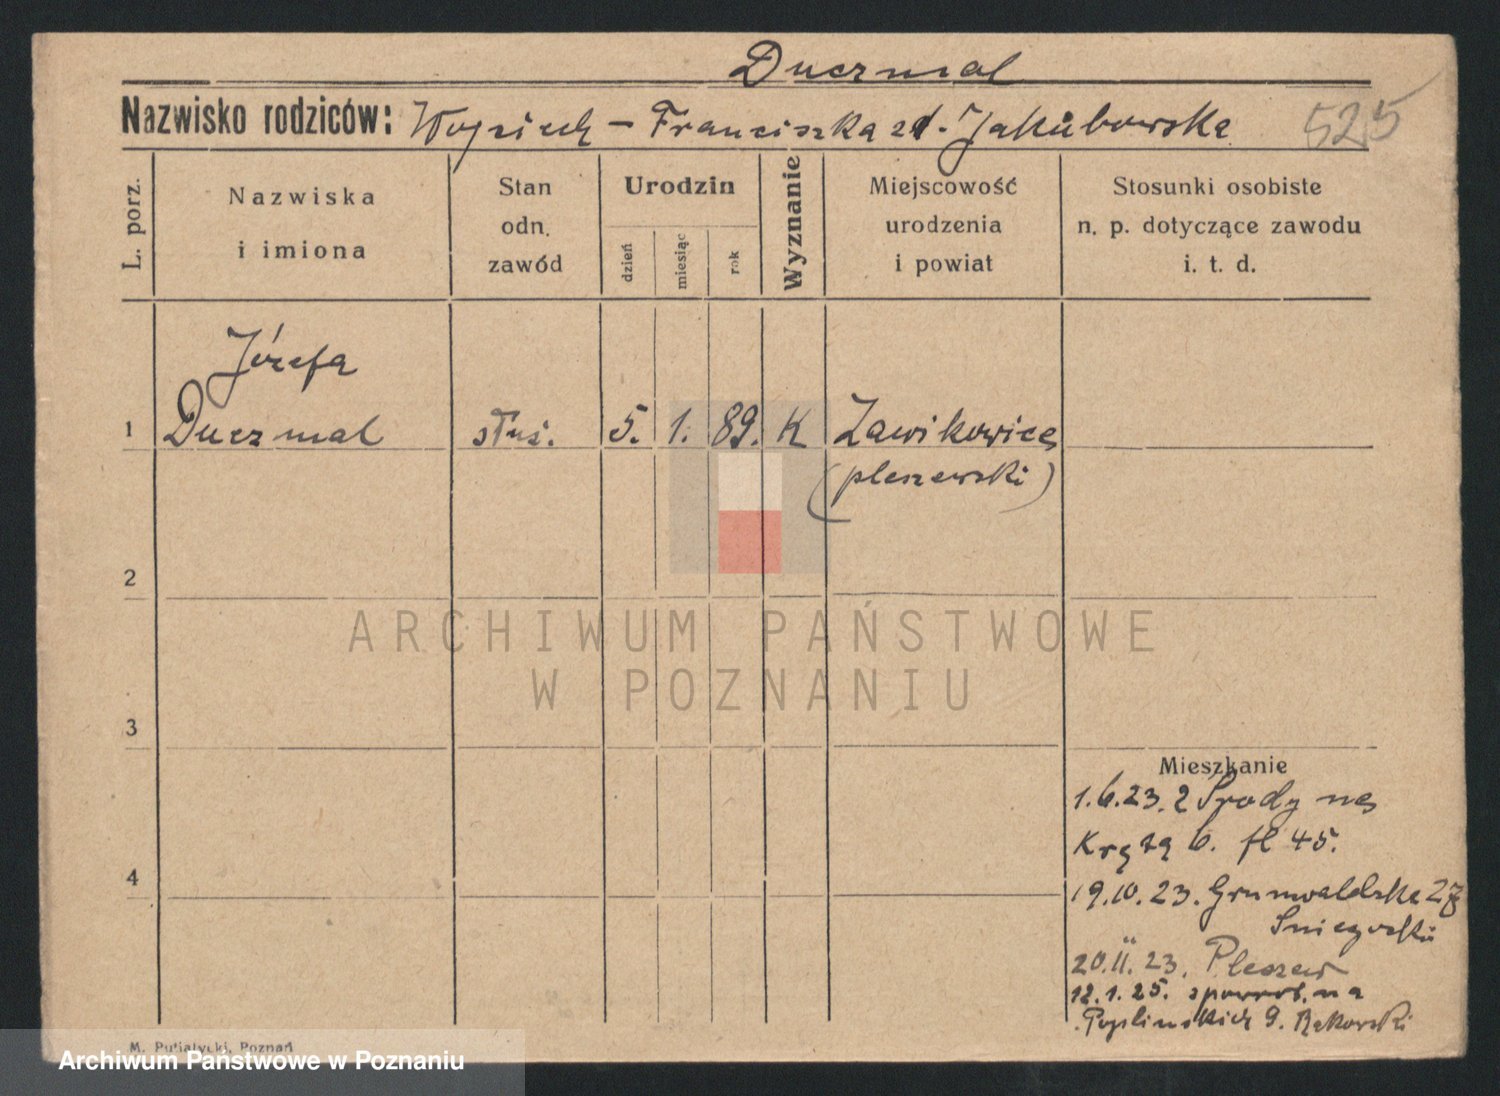 Duczmal
Nazwisko rodziców: Wojciech – Franciszka zd. Jakubowska 525
L. porz.
Nazwiska
i imiona
Stan
odn.
zawód
Urodzin
dzień
miesiąc
rok
Wyznanie
Miejscowość
urodzenia
i powiat
Stosunki osobiste
n. p. dotyczące zawodu
i. t. d.
Józefa
1 Duczmal służ. 5. 1. 89. K Zawikowice
(pleszewski)
2
ARCHIWUM PAŃSTWOWE
W POZNANIU
3
Mieszkanie
1.6.23. z Środy na
Krętą 6.
4
19.10.23. Grunwaldzka 27
20.11.23. Pleszew
12.1.25. z powrot. na
Poplińskich 9. Rakowski
M. Putiatycki, Poznań
Archiwum Państwowe w Poznaniu